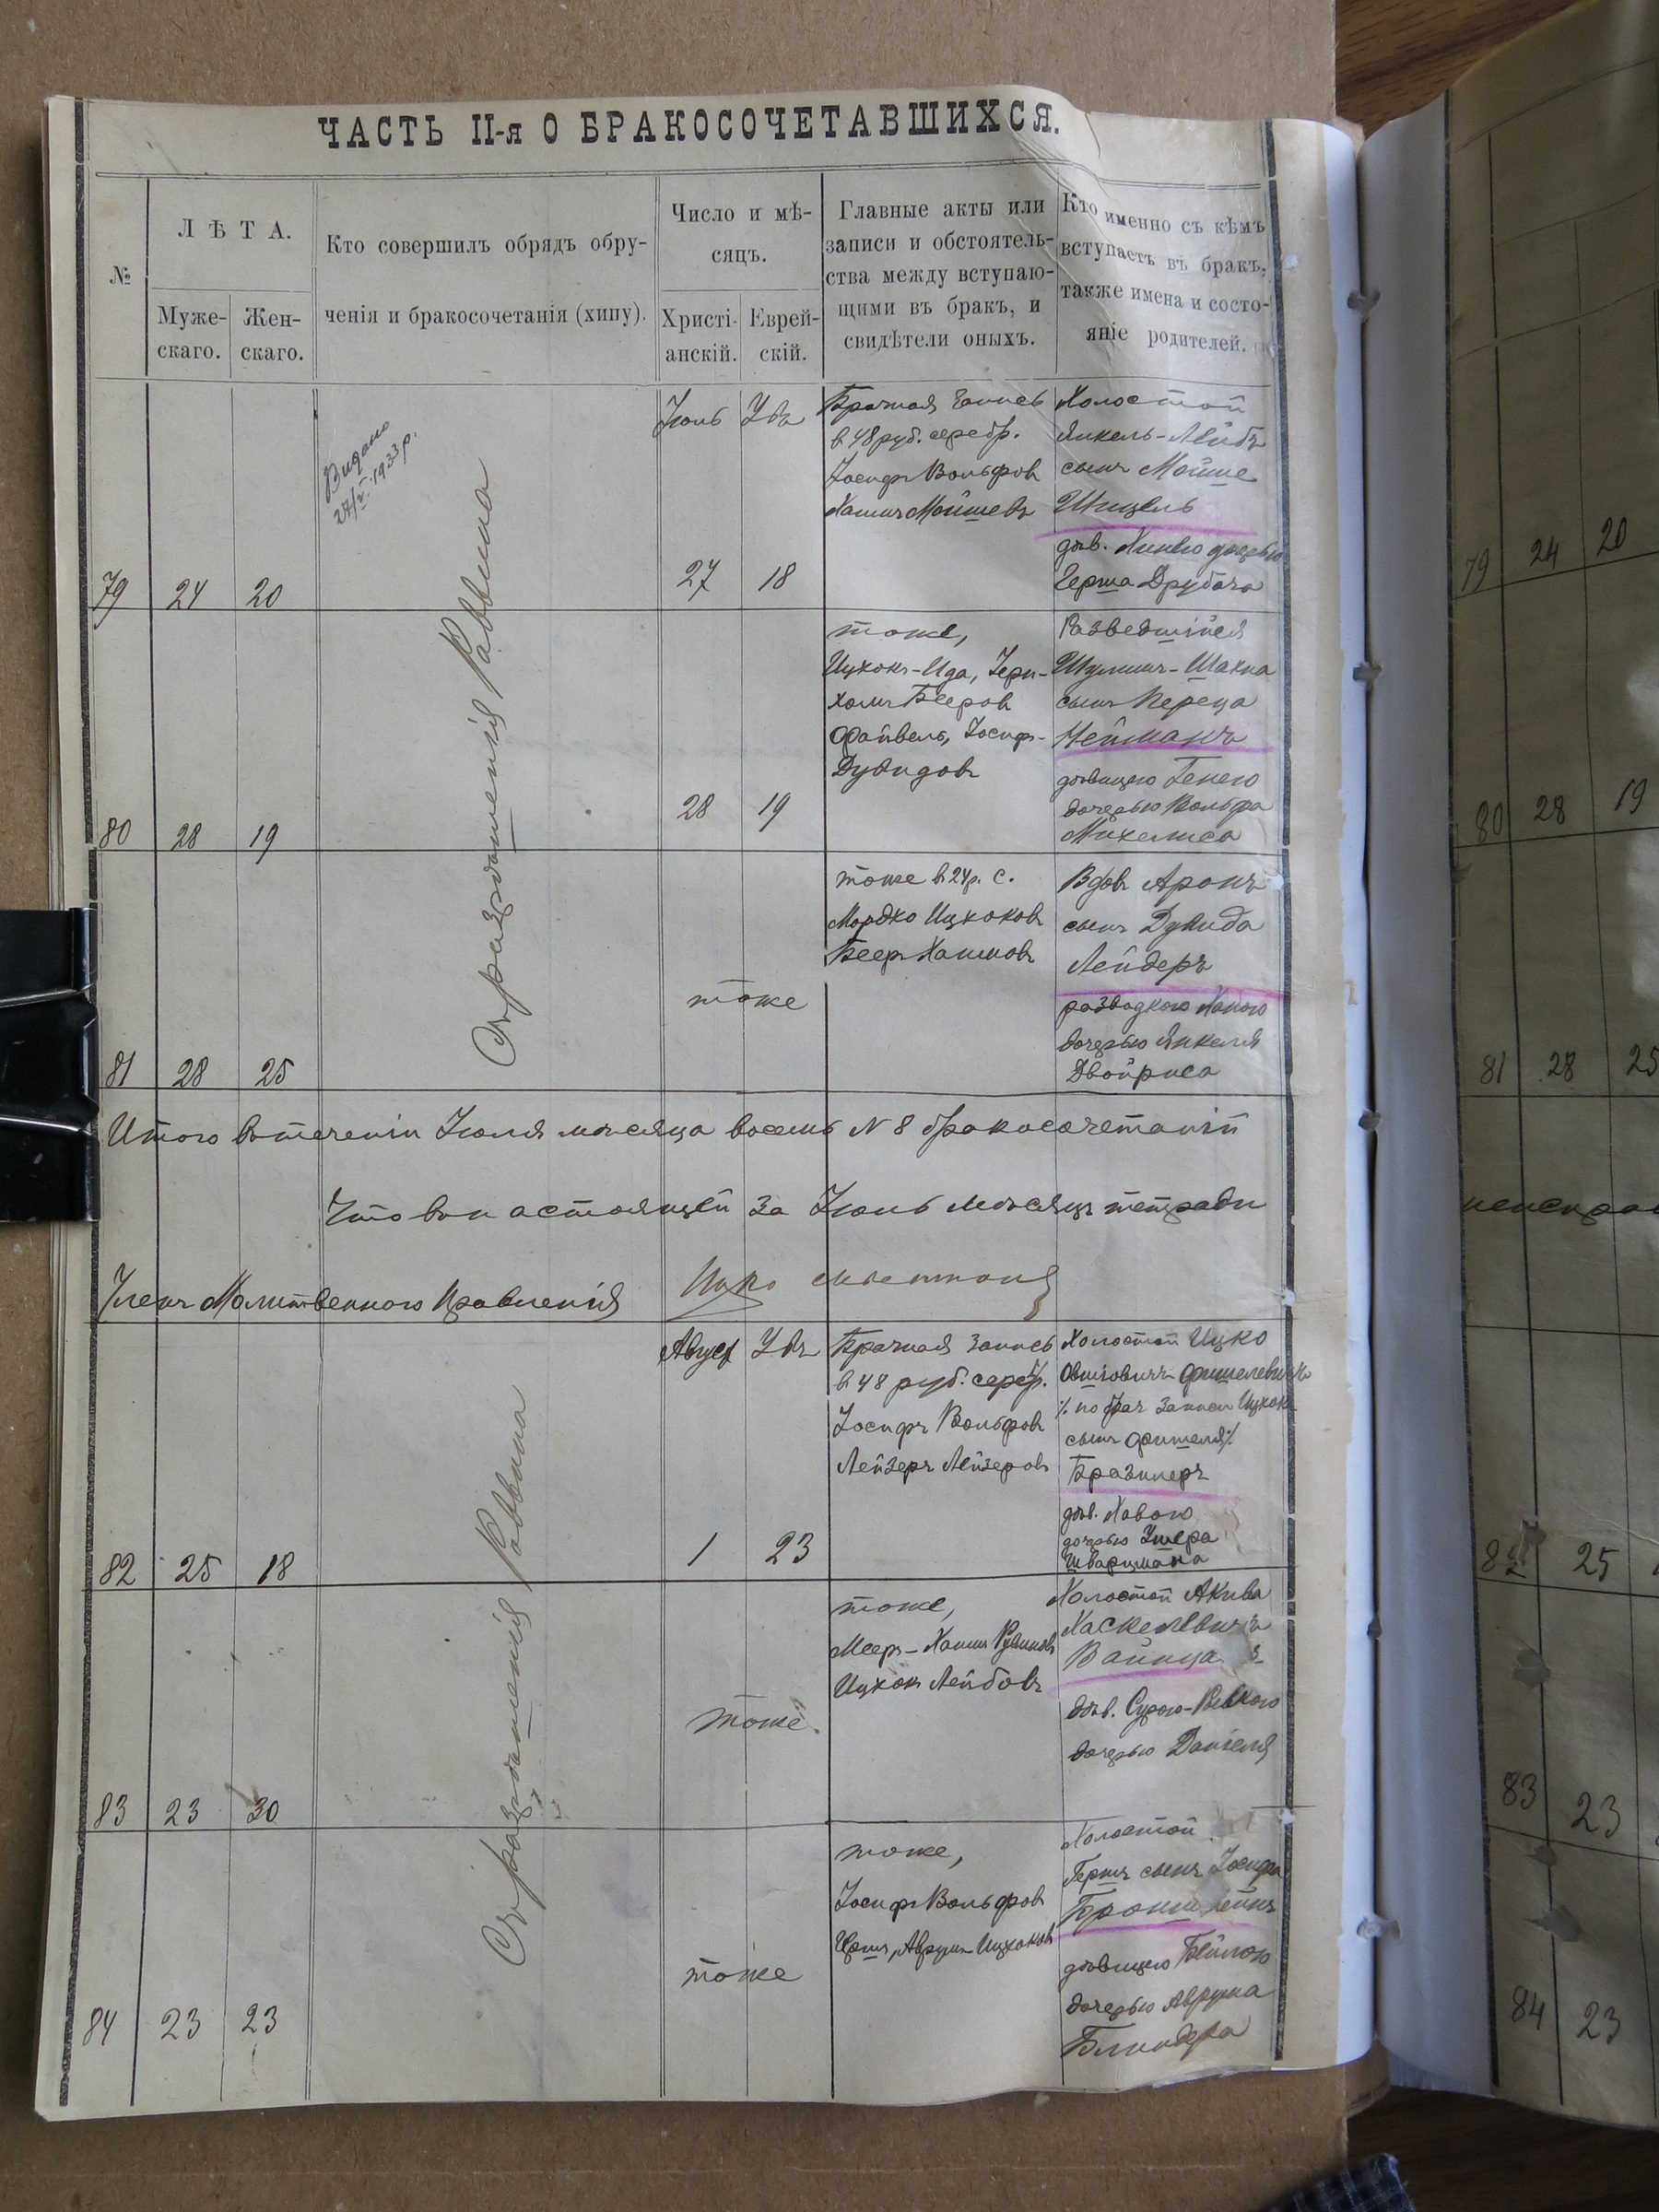 ЧАСТЬ II-я О БРАКОСОЧЕТАВШИХСЯ.
№
ЛѢТА.
Муже-
скаго.
Жен-
скаго.
Кто совершилъ обрядъ обру-
ченія и бракосочетанія (хипу).
Число и мѣ-
сяцъ.
Христі-
анскій.
Еврей-
скій.
Главные акты или
записи и обстоятель-
ства между вступаю-
щими въ бракъ, и
свидѣтели оныхъ.
Кто именно съ кѣмъ
вступаетъ въ бракъ,
также имена и состо-
яніе родителей.
79
24
20
Видано
1933 р.
Съ разрѣшенія Раввина
Іюль
27
Увъ
18
Брачная запись
в 48 руб. серебр.
Іосифъ Вольфовъ
Хаимъ Мойшевъ
Холостой
Янкель-Лейбъ
сынъ Мойше
Шицель
дѣв. дочерью
Герша Друбача
80
28
19
28
19
тоже,
Ицхокъ-Ида, Іери-
холъ Бееровъ
Файвель, Іосифъ-
Дувидовъ
Разведшійся
Шулимъ-Шахна
сынъ Переца
Нейманъ
дѣвицею Генею
дочерью Вольфа
Михелиса
81
28
25
тоже
тоже в 24 р. с.
Мордко Ицхоковъ
Бееръ Хаимовъ
Вдов. Аронъ
сынъ Дувида
Лейдеръ
разводкою Ханою
дочерью Янкеля
Двойриса
Итого втеченіи Іюля мѣсяца восемь N 8 бракосочетаній
Что внастоящей за Іюль мѣсяцъ тетради
Членъ Молитвенного Правленія
82
25
18
Съ разрѣшенія Раввина
Август
1
Увъ
23
Брачная запись
в 48 руб. сереб.
Іосифъ Вольфовъ
Лейзеръ Лейзеровъ
Холостой Ицко
Овшіовичъ Фишелевичъ
% по брач записи Ицхокъ
сынъ Фишеля %
Бразилеръ
дѣв. Хавою
дочерью Ушера
Шварцмана
83
23
30
тоже
тоже,
Мееръ-Хаимъ Рувиновъ
Ицхокъ Лейбовъ
Холостой Акива
Хаскелевичъ
дѣв. Сурою-Ривкою
дочерью Даніеля
84
23
23
тоже
тоже,
Іосифъ Вольфовъ
Гершъ, Аврумъ Ицхоковъ
Холостой
Гершъ сынъ Іосифа
Бронштейнъ
дѣвицею Бейлою
дочерью Аврума
Блиндера
79
24
20
80
28
19
81
28
25
82
25
83
23
84
23